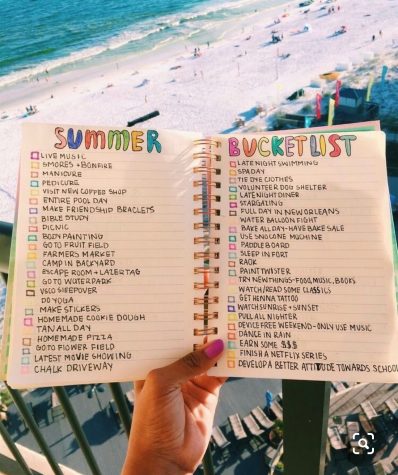 SUMMER
LIVE MUSIC
SMORES + BONFIRE
MANICURE
PEDICURE
VISIT NEW COFFEE SHOP
ENTIRE POOL DAY
MAKE FRIENDSHIP BRACLETS
BIBLE STUDY
PICNIC
BODY PAINTING
GO TO FRUIT FIELD
FARMERS MARKET
CAMP IN BACKYARD
ESCAPE ROOM + LAZER TAG
GO TO WATERPARK
VSCO SLEEPOVER
DO YOGA
MAKE STICKERS
HOMEMADE COOKIE DOUGH
TAN ALL DAY
HOMEMADE PIZZA
GO TO FLOWER FIELD
LATEST MOVIE SHOWING
CHALK DRIVEWAY
BUCKET LIST
LATE NIGHT SWIMMING
SPA DAY
TIE DYE CLOTHES
VOLUNTEER DOG SHELTER
LATE NIGHT DINER
STARGAZING
FULL DAY IN NEW ORLEANS
WATER BALLOON FIGHT
BAKE ALL DAY - HAVE BAKE SALE
USE SNOCONE MACHINE
PADDLE BOARD
SLEEP IN FORT
RACK
PAINT TWISTER
TRY NEW THINGS - FOOD, MUSIC, BOOKS
WATCH/READ SOME CLASSICS
GET HENNA TATTOO
WATCH SUNRISE + SUNSET
PULL ALL NIGHTER
DEVICE FREE WEEKEND - ONLY USE MUSIC
DANCE IN RAIN
EARN SOME $$$
FINISH A NETFLIX SERIES
DEVELOP A BETTER ATTITUDE TOWARDS SCHOOL